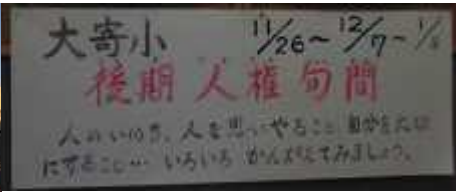 大寄小 11/26～12/7～
後期 人権 旬間
人のいのち、人を思いやること、自分を大切
にすること… いろいろ かんがえてみましょう。